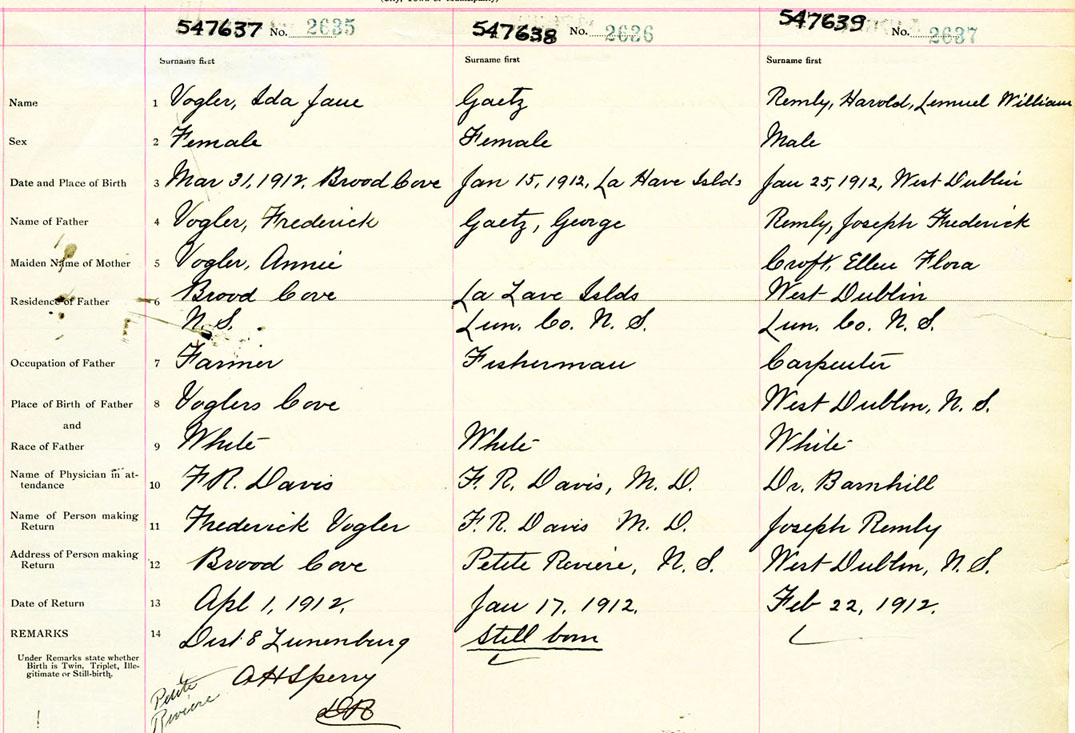 (City, Town or Municipality)
547637 No. 2635 547638 No. 2636 547639 No. 2637
Surname first Surname first Surname first
Name 1 Vogler, Ida Jane Gaetz Remly, Harold, Lemuel William
Sex 2 Female Female Male
Date and Place of Birth 3 Mar 31, 1912, Brood Cove Jan 15, 1912, La Have Islds Jan 25, 1912, West Dublin
Name of Father 4 Vogler, Frederick Gaetz, George Remly, Joseph Frederick
Maiden Name of Mother 5 Vogler, Annie Croft, Ellen Flora
Residence of Father 6 Brood Cove La Lave Islds West Dublin
N. S. Lun. Co. N. S. Lun. Co. N. S.
Occupation of Father 7 Farmer Fisherman Carpenter
Place of Birth of Father 8 Voglers Cove West Dublin, N. S.
and
Race of Father 9 White White White
Name of Physician in at-
tendance 10 F R. Davis F. R. Davis, M. D. Dr. Barnhill
Name of Person making
Return 11 Frederick Vogler F. R. Davis M. D. Joseph Remly
Address of Person making
Return 12 Brood Cove Petite Reviere, N. S. West Dublin, N. S.
Date of Return 13 Apl 1, 1912, Jan 17, 1912, Feb 22, 1912.
REMARKS 14 Dist 8 Lunenburg Still born
Under Remarks state whether
Birth is Twin, Triplet, Ille-
gitimate or Still-birth.
A H Sperry
Petite
Riviere